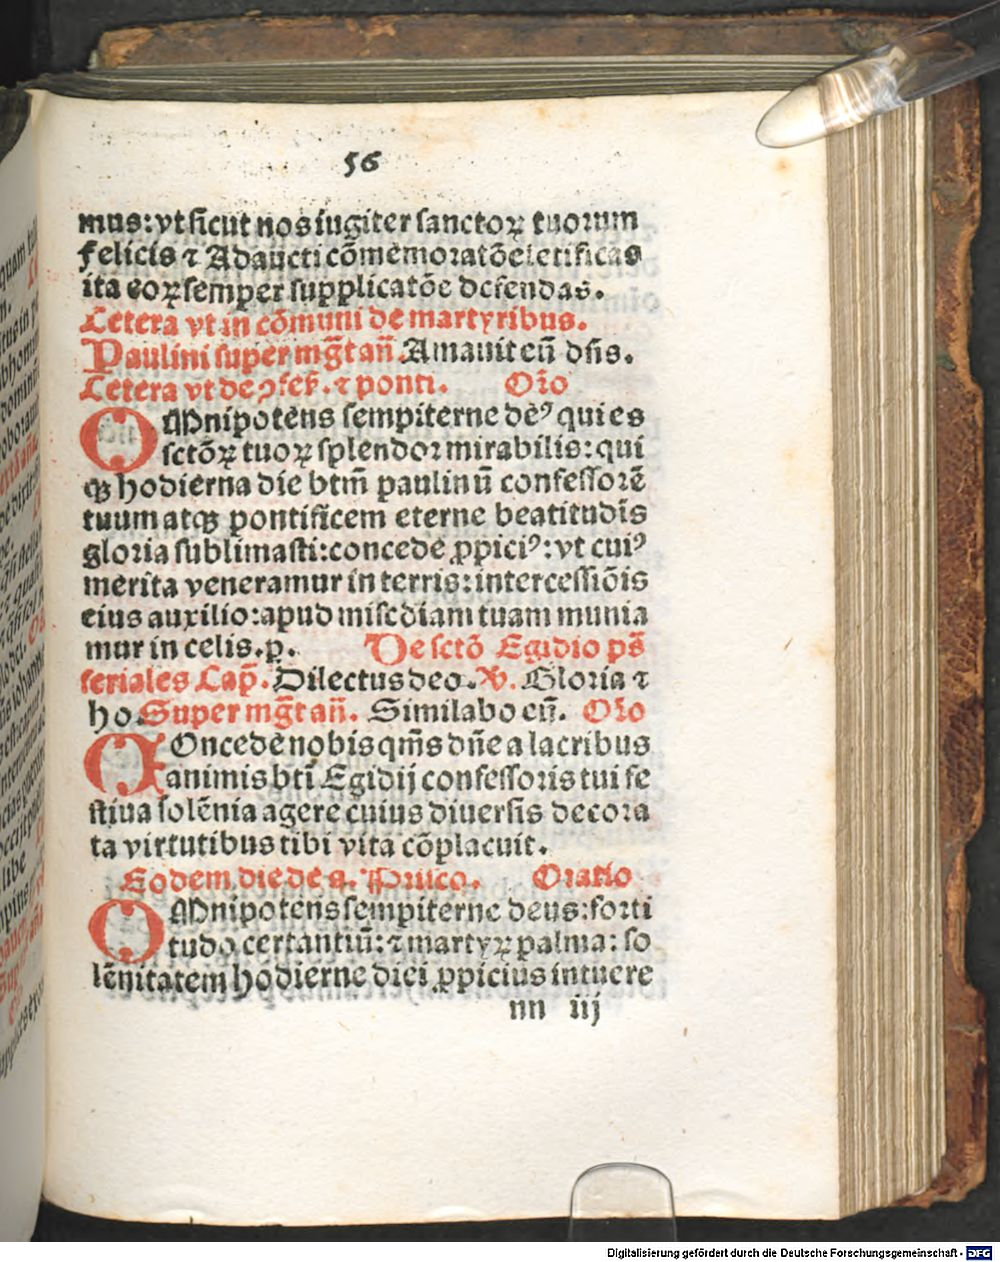 56
mus: vt sicut nos iugiter sanctoꝝ tuorum
felicis ⁊ Adaucti cōmemoratōe letificas
ita eoꝝ semper supplicatōe defendas.
Cetera vt in cōmuni de martyribus.
Paulini super mg̅t an̄. Amauit eū dn̄s.
Cetera vt de ꝯfes. ⁊ ponti. Oro̅
OMnipotens sempiterne deꝰ qui es
sctōꝝ tuoꝝ splendor mirabilis: qui
qꝫ hodierna die btm̄ paulinū confessorē
tuum atqꝫ pontificem eterne beatitudīs
gloria sublimasti: concede ꝓpiciꝰ: vt cuiꝰ
merita veneramur in terris: intercessiōis
eius auxilio: apud misc̄diam tuam munia
mur in celis. p. De sctō Egidio ps̄
seriales Cap̄. Dilectus deo. ℟. Gloria ⁊
ho. Super mg̅t an̄. Similabo eū. Oro̅
COncede nobis qm̄s dn̄e alacribus
animis bti̅ Egidij confessoris tui fe
stiua solēnia agere cuius diuersis decora
ta virtutibus tibi vita cōplacuit.
Eodem die de s. Prisco. Oratio
OMnipotens sempiterne deus: forti
tudo certantiū: ⁊ martyꝝ palma: so
lēnitatem hodierne diei ꝓpicius intuere
nn iij
Digitalisierung gefördert durch die Deutsche Forschungsgemeinschaft - DFG